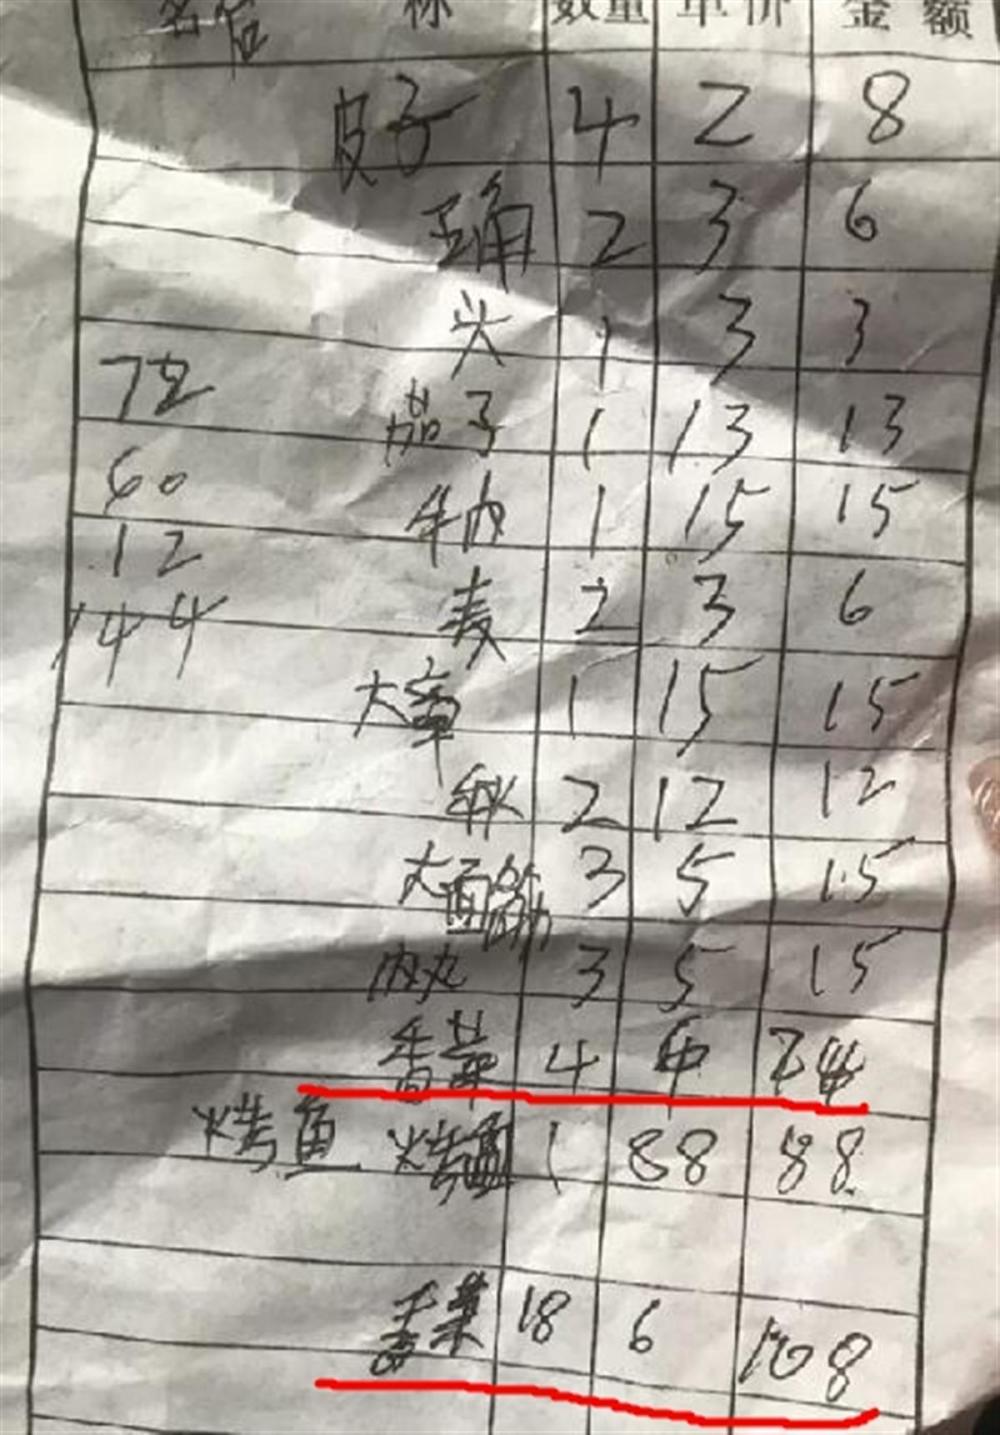 名 称 数量 单价 金 额
皮子 4 2 8
2 3 6
头 1 3 3
72
茄子 1 13 13
60
牛肉 1 15 15
12
麦 2 3 6
144
大辜 1 15 15
2 12 12
大面筋 3 5 15
肉丸 3 5 15
香菜 4
烤鱼 烤鱼 1 88 88
香菜 18 6 108